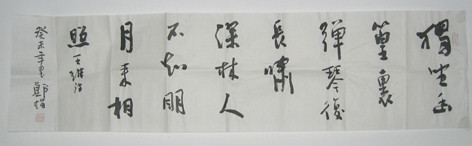 獨坐幽
篁裏
彈琴復
長嘯
深林人
不知明
月来相
照 王維詩
癸未年 鄭